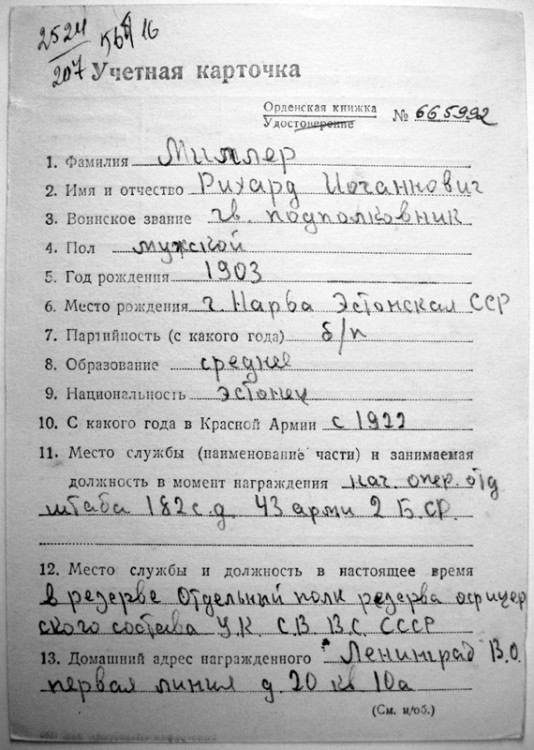 2524
207
16
Учетная карточка
Орденская книжка
Удостоверение
№ 665992
1. Фамилия Миллер
2. Имя и отчество Рихард Иоганнович
3. Воинское звание гв. подполковник
4. Пол мужской
5. Год рождения 1903
6. Место рождения г. Нарва Эстонская ССР
7. Партийность (с какого года) б/п
8. Образование среднее
9. Национальность эстонец
10. С какого года в Красной Армии с 1922
11. Место службы (наименование части) и занимаемая
должность в момент награждения нач. опер. отд
штаба 182 с.д. 43 арми 2 Б.СР.
12. Место службы и должность в настоящее время
в резерве Отдельный полк резерва офицер
ского состава У.К. С.В. В.С. СССР
13. Домашний адрес награжденного Ленинград В.О.
первая линия д. 20 кв 10а
(См. н/об.)